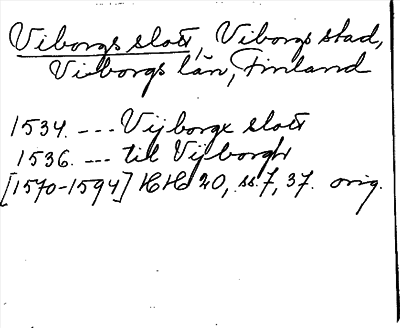 Viborgs slott, Viborgs stad,
Viborgs län, Finland
1534. --- Vijborgx slott
1536. --- til Vijborgh
[1570-1594] HH 20, ss. 7, 37. orig.